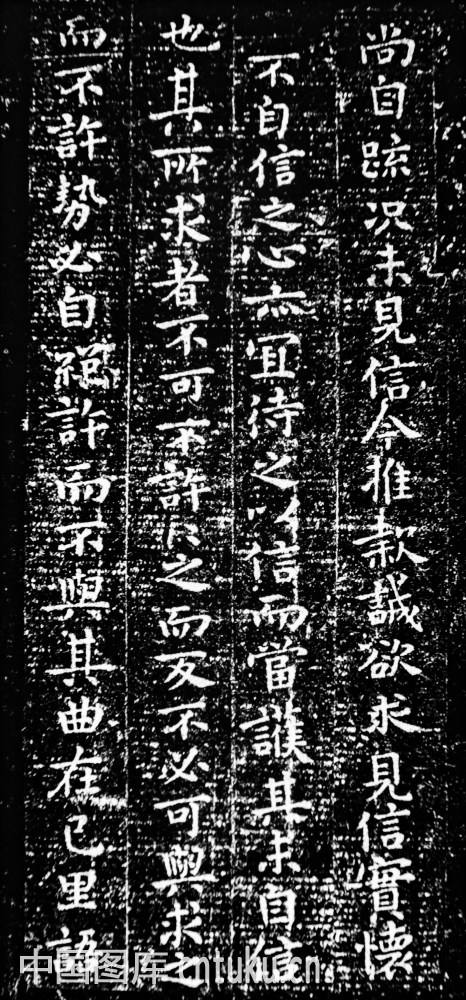 尚自疏况未見信今推款誠欲求見信實懷
不自信之心亦宜待之以信而當護其未自信
也其所求者不可不許許之而反不必可與求之
而不許勢必自絕許而不與其曲在己里語
中国图库 cntuku.cn